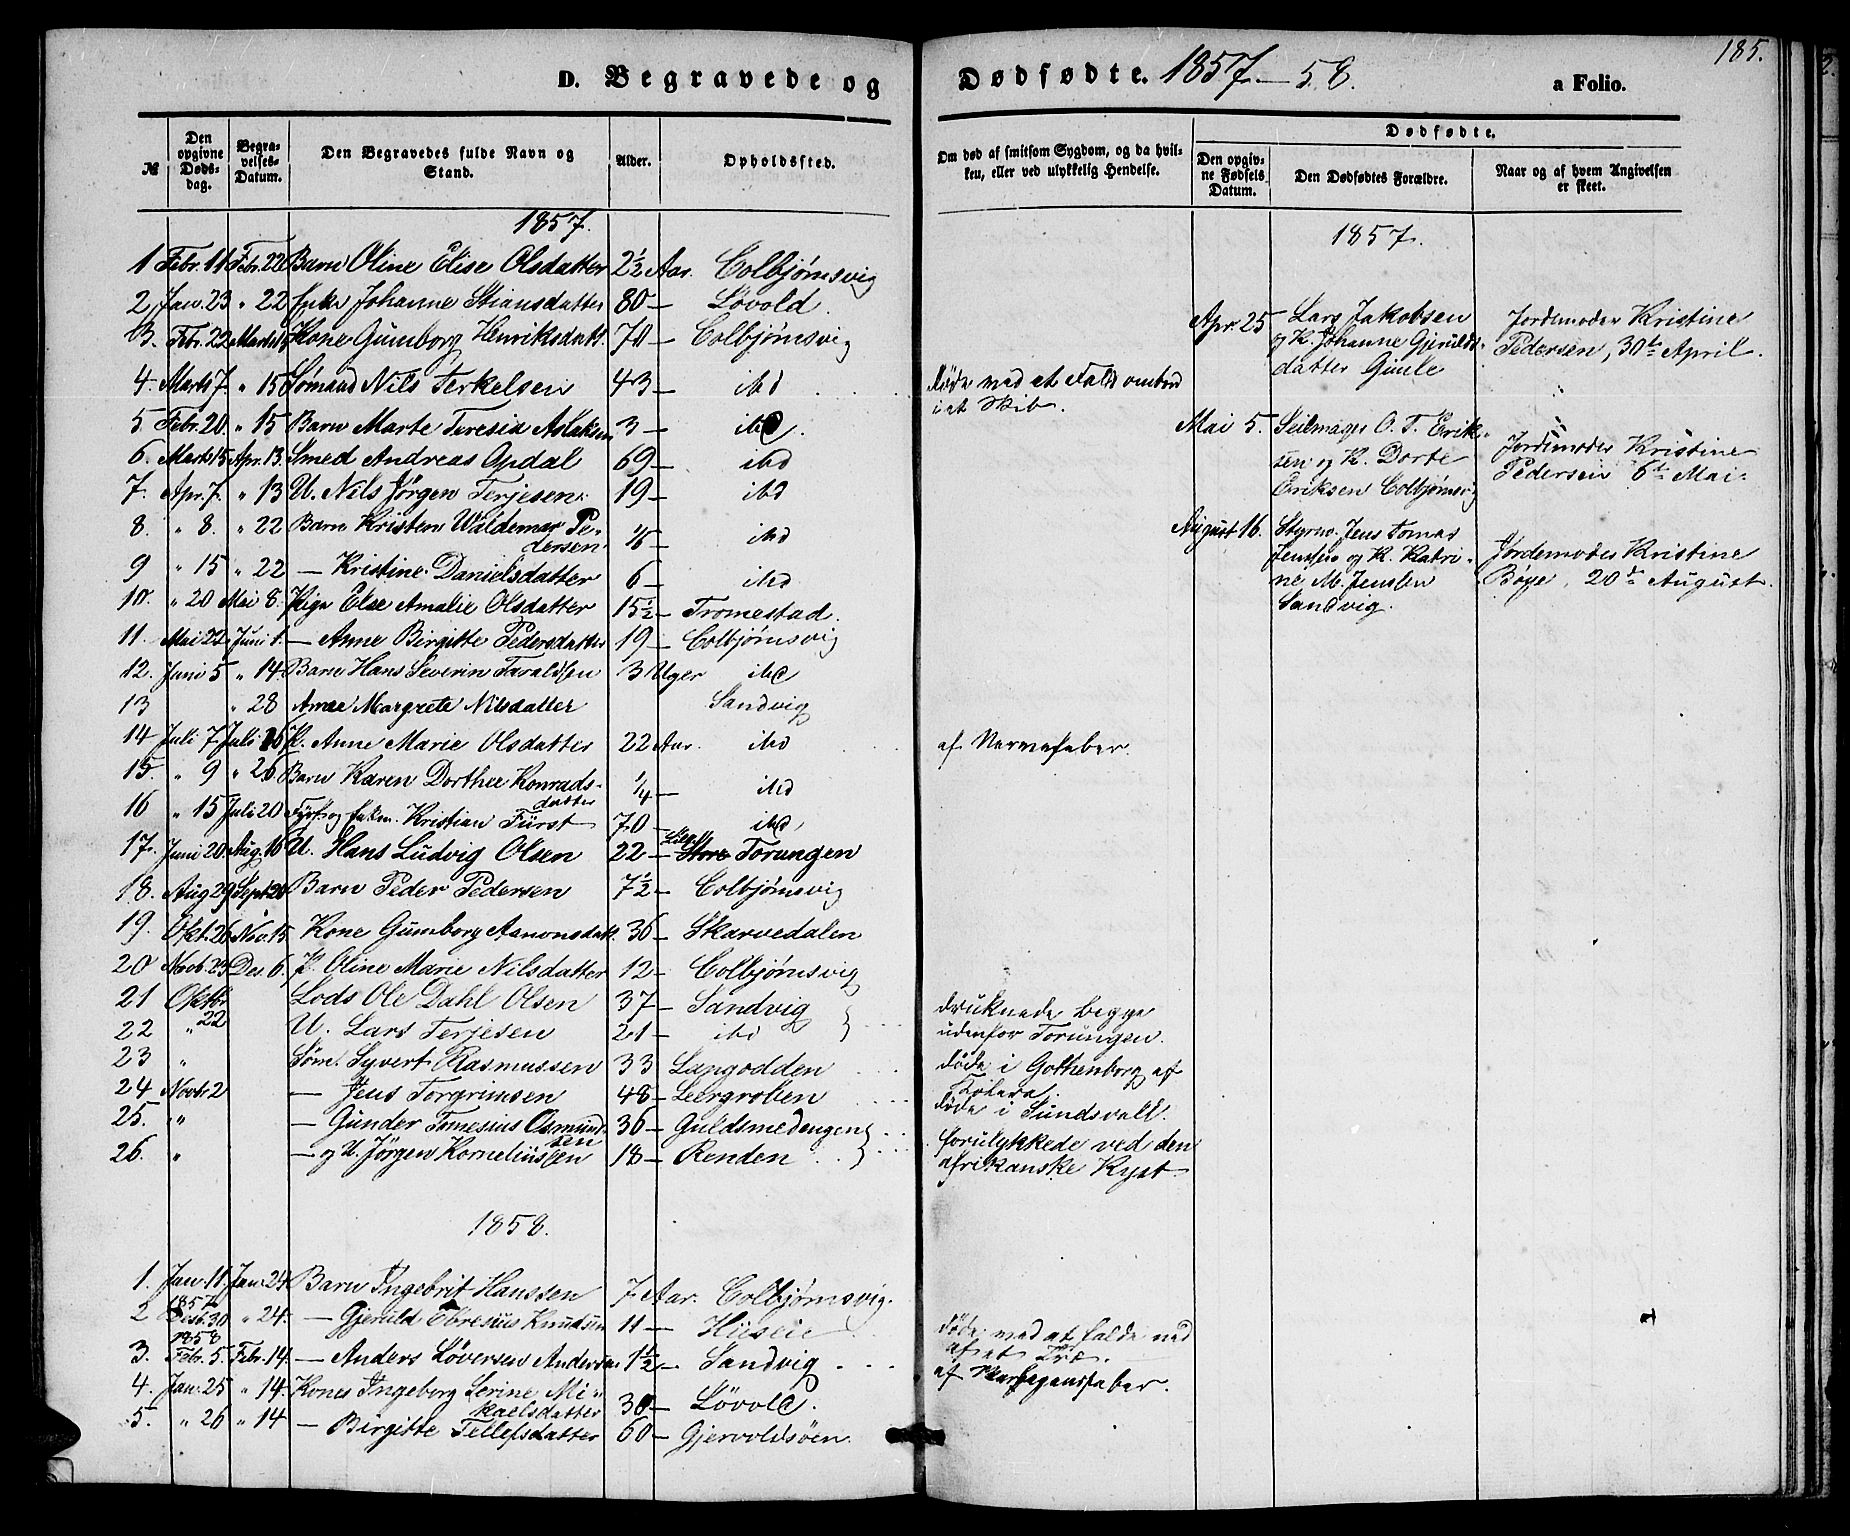 185.
D. Begravede og Dødfødte. 1857.—58. a Folio.
№ Den opgivne Dødsdag. Begravelses-Datum. Den Begravedes fulde Navn og Stand. Alder. Opholdssted.
1857.
1 Febr. 11 Febr. 22 Barn Oline Elise Olsdatter 2½ Aar. Colbjørnsvig
2 Jan. 23 " 22 Enke Johanne Stiansdatter 80 — Løvold.
3. Febr. 22 Marts Kone Gunborg Henriksdatt. 70 — Colbjørnsvig
4. Marts 7. " 15 Sømand Nils Terkelsen 43 — ibd
5 Febr. 20. " 15 Barn Marte Teresia Aslaksen 3 — ibd.
6. Marts 15 Apr. 13. Smed Andreas Opdal 69 — ibd
7. Apr. 7. " 13 U. Nils Jörgen Terjesen. 19 — ibd
8. " 8. " 22 Barn Kristen Waldemar Pe-
dersen. — ibd
9 " 15 " 22 — Kristine Danielsdatter 6 — ibd
10. " 20 Mai 8. Pige Else Amalie Olsdatter 15½ — Tromestad.
11. Mai 22. Juni 1. — Anne Birgitte Pedersdatter 19 — Colbjørnsvig
12. Juni 5 " 14. Barn Hans Severin Taraldsen 3 Uger ibd
13 " 28 Anne Margrete Nilsdatter Sandvig
14 Juli 7. Juli K. Anne Marie Olsdatter 22 Aar. ibd
15. " 9 " 26 Barn Karen Dorthea Konrads-
datter ¼ — ibd
16 " 15 Juli 20 Kristian Fürst 70 — ibd
17. Juni 20. Aug. 16 U. Hans Ludvig Olsen 22 — Lille Store Torungen
18. Aug 29 Sept 20 Barn Peder Pedersen 7½ — Colbjørnsvig
19. Okt. 26 Nov. 15 Kone Gunborg Aanonsdatt. 36 — Skarvedalen
20 Novb. 24 Des. 6. P. Oline Marie Nilsdatter 12 — Colbjørnsvig
21 Oktbr Lods Ole Dahl Olsen 37 — Sandvig
22 " 22 U. Lars Terjesen 21 — ibd
23 " Søm. Syvert Rasmussen 33 Langodden
24 Novbr 2 — Jens Torgrimsen 48 — Leergroben
25. " — Gunder Tomesius Osmund-
sen 36 — Guldsmedengen
26. " — og U. Jörgen Korneliussen 18 — Renden
1858.
1. Jan. 11. Jan. 24. Barn Ingebrit Hanssen 7 Aar. Colbjørnsvig.
1857
2 Desb. 30 " 24. — Gjeruld Ebresius Knudsen 11 — Hüseie
1858
3. Febr. 5. Febr. 14. — Anders Løversen Andersen 1½ — Sandvig
4. Jan. 25 " 14. Kone Ingeborg Serine Mi-
kaelsdatter 30 — Løvold.
5. " 26 " 14 — Birgitte Tellefsdatter 60 — Gjervoldsöen.
Om død af smitsom Sygdom, og da hvil-
ken, eller ved ulykkelig Hendelse.
døde ved et Fald ombord
i et Skib.
af Nervefeber.
druknede begge
udenfor Torungen.
døde i Gothenborg af
Kolera.
døde i Sundsvall.
forulykkede ved den
afrikanske Kyst.
døde ved at falde ned
af et Træ.
af
Dødfødte.
Den opgivne Fødsels Datum. Den Dødfødtes Forældre. Naar og af hvem Angivelsen er skeet.
1857.
Apr. 25 Lars Jakobsen
og K. Johanne Gjerulds-
datter Gimle
Jordemoder Kristine
Pedersen, 30te April.
Mai 5. Seilmager O. T. Erik-
sen og K. Dorte
Eriksen Colbjørnsvig
Jordemoder Kristine
Pedersen 6te Mai.
August 16. Styrm. Jens Tomas
Jenssen og K. Katri-
ne M. Jenssen
Sandvig.
Jordemoder Kristine
Bøye, 20de August.